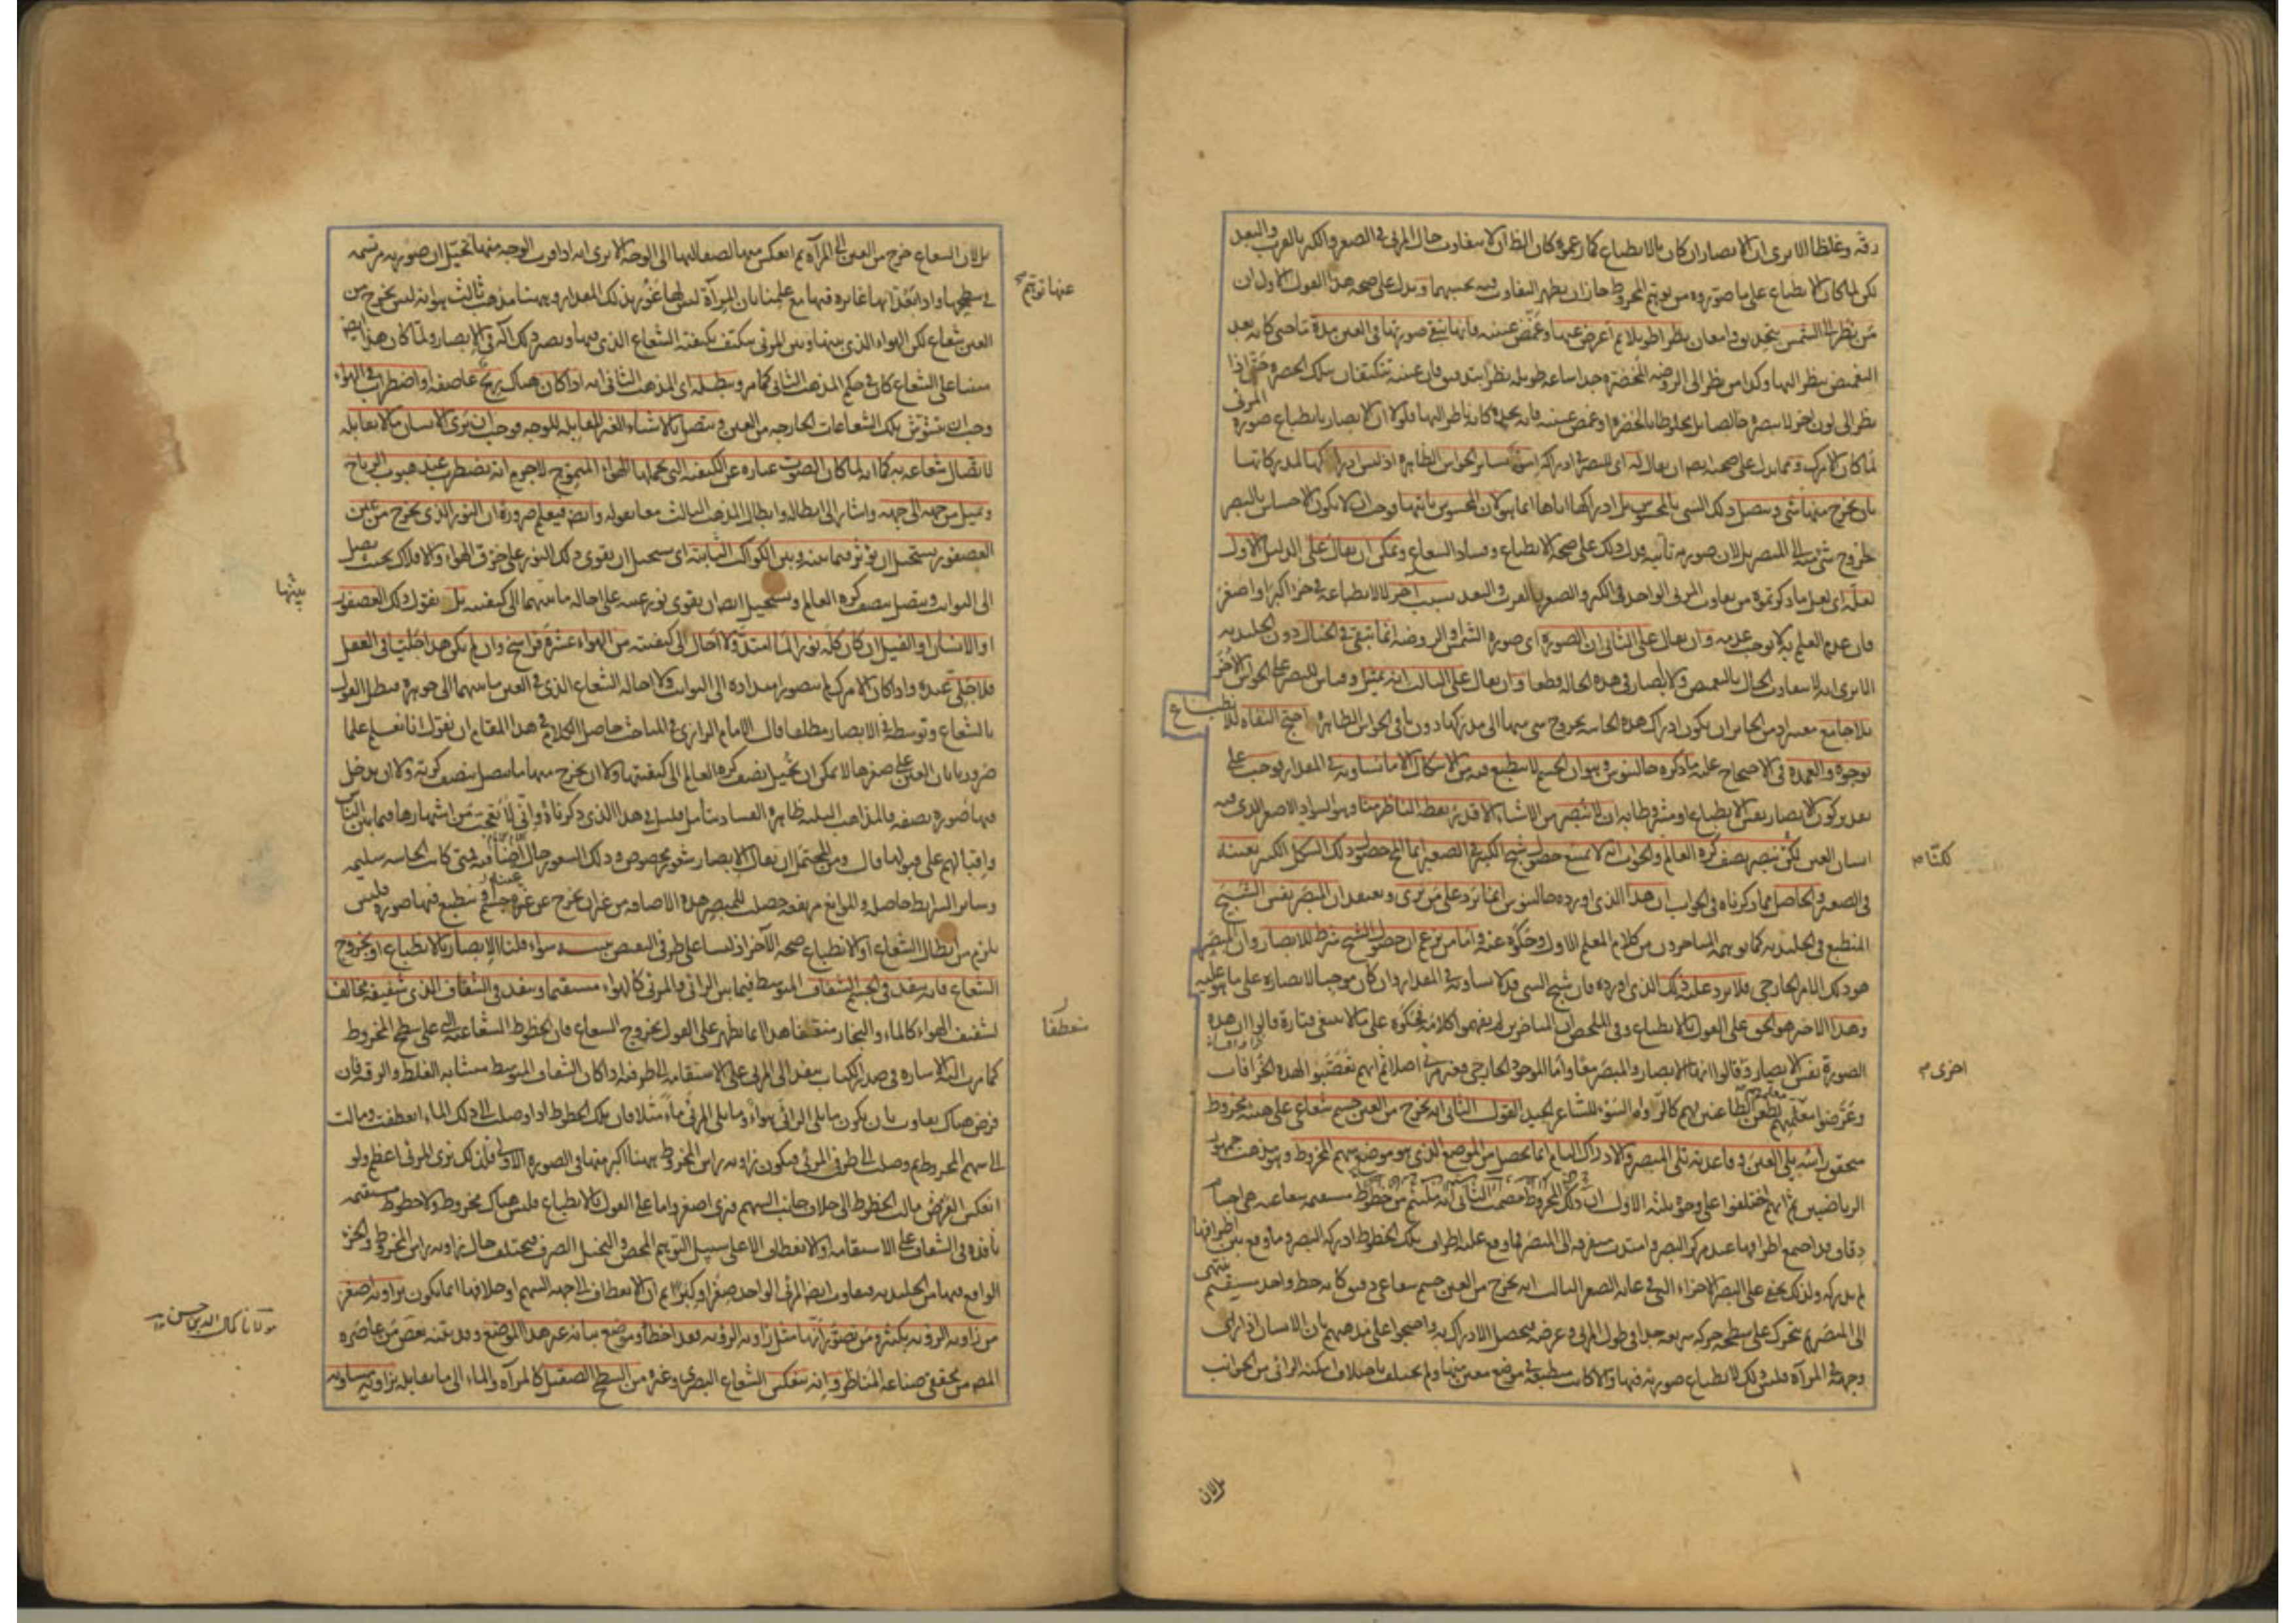 دقة وغلظا الا يرى ان الابصار ان كان بالانطباع كما زعموه كان الظ ان لا يتفاوت حال المرئى فى الصغر والكبر بالقرب والبعد
لكن لما كان الانطباع على ما صوروه من توهم المخروط جاز ان يظهر التفاوت فيه بحسبهما ويدل على صحة هذا القول الاول ان
من نظر الى الشمس بتحديق وامعان نظرا طويلا ثم اعرض عنها وغمض عينيه فانها تبقى صورتها فى العين مدة ما حتى كانه بعد
التغميض ينظر اليها وكذا من نظر الى الروضة المخضرة جدا ساعة طويلة نظرا بتدقيق فان عينيه تتكيفان بتلك الخضرة حتى اذا
نظر الى لون اخر لا يبصره خالصا بل مخلوطا بالخضرة او غمض عينيه فانه يجده كانه ناظر اليها فلولا ان الابصار بانطباع صورة المرئى
لما كان الامر كذلك ومما يدل على صحته ايض ان يقال انه اى البصر فى ادراكه اسوة بسائر الحواس الظاهرة اذ ليس ادراكها لمدركاتها
بان يخرج منها شئ ويتصل ذلك الشئ بالمحسوس بل ادراكها اياها انما هو لان المحسوس ياتيها فوجب ان لا يكون الاحساس بالبصر
لخروج شئ منه الى المبصر بل لان صورته تاتيه فدل ذلك على صحة الانطباع وفساد الشعاع ويمكن ان يقال على الدليل الاول
لعله اى لعل ما ذكرتموه من تفاوت المرئى الواحد فى الكبر والصغر بالقرب والبعد بسبب اخر لا للانطباع فى جزء اكبر او اصغر
فان عدم العلم به لا يوجب عدمه وان يقال على الثانى ان الصورة اى صورة الشمس او الروضة انما تبقى فى الخيال دون الجليدية
الا يرى انه لا يتفاوت الحال بالتغميض ولا ابصار فى هذه الحالة قطعا وان يقال على الثالث انه تمثيل وقياس للبصر على الحواس الاخر
بلا جامع معتبر اذ من الجائز ان يكون ادراك هذه الحاسة بخروج شئ منها الى مدركها دون باقى الحواس الظاهرة احتج النفاة للانطباع
بوجوه والعمدة فى الاحتجاج عليه ما ذكره جالينوس وهو ان الجسم لا ينطبع فيه من الاشكال الا ما يساويه فى المقدار فوجب على
تقدير كون الابصار نفس الانطباع او مشروطا به ان لا نبصر من الاشياء الا قدر نقطة الناظر منا وهو السواد الاصغر الذى فيه
انسان العين لكن نبصر نصف كرة العالم والجواب انه لا يمتنع حصول شبح الكبير فى الصغير انما المح حصول ذلك الشكل الكبير بعينه
فى الصغير والحاصل مما ذكرناه فى الجواب ان هذا الذى اورده جالينوس انما يرد على من يرى ويعتقد ان المبصر نفس الشبح
المنطبع فى الجليدية كما توهمه المتاخرون من كلام المعلم الاول وحكوه عنه واما من يزعم ان حصول الشبح شرط للابصار وان المبصر
هو ذلك الامر الخارجى فلا يرد عليه ذلك الذى اورده فان شبح الشئ قد لا يساويه فى المقدار وان كان موجبا لابصاره على ما هو عليه
وهذا الاخير هو الحق على القول بالانطباع وفى الملخص ان المتاخرين لم يفهموا كلامه فحكوه على ما لا ينبغى فتارة قالوا ان هذه
الصورة نفس الابصار وقالوا انها الابصار والمبصر معا واما الموجود الخارجى فغير مرئى اصلا ثم انهم تعصبوا لهذه الخرافات
وعرضوا معلمهم لطعن الطاعنين القول الثانى انه يخرج من العين جسم شعاعى على هيئة مخروط
متحقق راسه يلى العين وقاعدته تلى المبصر والادراك التام انما يحصل من الموضع الذى هو موضع سهم المخروط وهو مذهب جمهور
الرياضيين ثم انهم اختلفوا على وجوه ثلثة الاول ان ذلك المخروط مصمت الثانى انه ملتئم من خطوط مستقيمة شعاعية هى اجسام
دقاق قد اجتمع اطرافها عند مركز البصر وامتدت متفرقة الى المبصر فما وقع عليه اطراف تلك الخطوط ادركه البصر وما وقع بين اطرافها
لم يدركه ولذلك يخفى على البصر الاجزاء التى فى غاية الصغر الثالث انه يخرج من العين جسم شعاعى دقيق كانه خط واحد مستقيم ينتهى
الى المبصر ثم يتحرك على سطحه حركة سريعة جدا فى طول المرئى وعرضه فيحصل الادراك به واحتجوا على مذهبهم بان الانسان اذا راى
وجهه فى المرآة فليس ذلك لانطباع صورته فيها والا كانت منطبعة فى موضع معين منها ولم تختلف باختلاف امكنة الرائى من الجوانب
لكنا
اخرى
بل لان
بل لان الشعاع خرج من العين الى المرآة ثم انعكس منها لصقالتها الى الوجه الا يرى انه اذا قرب الوجه منها تخيل ان صورته مرتسمة
فى سطحها واذا بعد انها غائرة فيها مع علمنا بان المرآة ليس لها غور بذلك المقدار وههنا مذهب ثالث هو انه ليس يخرج من
العين شعاع لكن الهواء الذى بينها وبين المرئى يتكيف بكيفية الشعاع الذى فيها ويصير ذلك آلة فى الابصار ولما كان هذا ايض
مبنيا على الشعاع كان فى حكم المذهب الثانى كما مر ويبطله اى المذهب الثانى انه اذا كان هناك ريح عاصفة او اضطراب فى الهواء
وجب ان تتشوش تلك الشعاعات الخارجة من العين وتتصل بالاشياء الغير المقابلة للوجه فوجب ان يرى الانسان ما لا يقابله
لاتصال شعاعه به كما انه لما كان الصوت عبارة عن الكيفية التى يحملها الهواء المتموج لا جرم انه يضطرب عند هبوب الرياح
ويميل من جهة الى جهة واشار الى ابطاله وابطال المذهب الثالث معا بقوله وايض فيعلم ضرورة ان النور الذى يخرج من عين
العصفور يستحيل ان يؤثر فيما بينه وبين الكواكب الثابتة اى يستحيل ان يقوى ذلك النور على خرق الهواء والافلاك بحيث يصل
الى الثوابت ويتصل بنصف كرة العالم ويستحيل ايض ان يقوى نور عينه على احالة ما بينهما الى كيفيته بل نقول ذلك العصفور
او الانسان او الفيل ان كان كله نورا لما امتد ولا احال الى كيفيته من الهواء عشرة فراسخ وان لم يكن هذا جليا فى العقل
فلا جلى عنده واذا كان الامر كذلك لم يتصور امتداده الى الثوابت ولا احالة الشعاع الذى فى العين ما بينهما الى جوهره فبطل القول
بالشعاع وتوسطه فى الابصار مطلقا قال الامام الرازى فى المباحث حاصل الكلام فى هذا المقام ان نقول انا نعلم علما
ضروريا بان العين على صغرها لا يمكن ان تحيل نصف كرة العالم الى كيفيتها ولا ان يخرج منها ما يتصل بنصف كرته ولا ان يدخل
فيها صورة نصفه فالمذاهب الثلثة ظاهرة الفساد بتأمل قليل فى هذا الذى ذكرناه وانى لاتعجب من اشتهارها فيما بين الناس
واقبالهم على قبولها قال ومن المحتمل ان يقال الابصار شعور مخصوص وذلك الشعور حالة اضافية فمتى كانت الحاسة سليمة
وسائر الشرائط حاصلة والموانع مرتفعة حصلت للمبصر هذه الاضافة من غير ان يخرج عن عينه جسم او ينطبع فيها صورة فليس
يلزم من ابطال الشعاع او الانطباع صحة الآخر اذ ليسا على طرفى النقيض تنبيه سواء قلنا الابصار بالانطباع او بخروج
الشعاع فانه ينفذ فى الجسم الشفاف المتوسط فيما بين الرائى والمرئى كالهواء مستقيما وينفذ فى الشفاف الذى شفيفه مخالف
لشفيف الهواء كالماء والبخار منعطفا هذا انما يظهر على القول بخروج الشعاع فان الخطوط الشعاعية التى على سطح المخروط
كما مرت اليه الاشارة فى صدر الكتاب ينفذ الى المرئى على الاستقامة الى طرفيه اذا كان الشفاف المتوسط متشابه الغلظ والرقة فان
فرض هناك تفاوت بان يكون ما يلى الرائى هواء وما يلى المرئى ماء مثلا فان تلك الخطوط اذا وصلت الى ذلك الماء انعطفت ومالت
الى سهم المخروط ثم وصلت الى طرفى المرئى فيكون زاوية راس المخروط ههنا اكبر منها فى الصورة الاولى فلذلك يرى المرئى اعظم ولو
انعكس الفرض مالت الخطوط الى خلاف جانب السهم فيرى اصغر واما على القول بالانطباع فليس هناك مخروط ولا خطوط مستقيمة
نافذة فى الشفاف على الاستقامة والانعطاف الا على سبيل التوهم المحض والتخيل الصرف فيختلف حال زاوية راس المخروط والجزء
الواقع فيها من الجليدية ويتفاوت ايض المرئى الواحد صغرا وكبرا ثم ان الانعطاف الى جهة السهم او خلافها انما يكون بزاوية اصغر
من زاوية الرؤية بكثير ومن تصور انها مثل زاوية الرؤية فقد اخطأ وموضع بيانه غير هذا الموضع وقد بينه بعض من عاصره
المص من محققى صناعة المناظر وانه ينعكس الشعاع البصرى وغيره من السطح الصقيل كالمرآة والماء الى ما يقابله بزاوية مساوية
عنها توهم
بينها
منعطفا
مولانا كمال الدين حسن